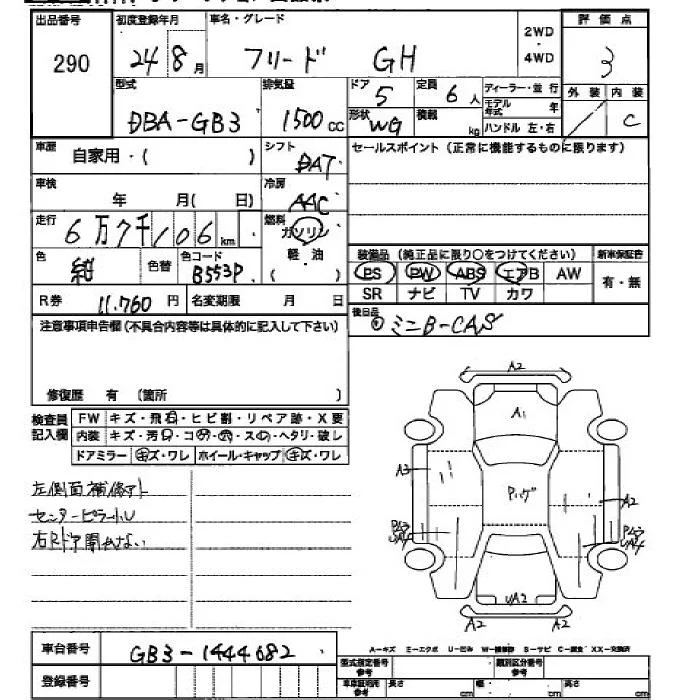 出品番号 初度登録年月 車名・グレード 評価点
290 24 8月 フリード GH 2WD・4WD 3
型式 排気量 ドア 定員 ディーラー・並行 外装 内装
DBA-GB3 1500cc 5 6人 モデル年式 年 C
形状 WG 積載 kg ハンドル 左・右
車歴 自家用・( ) シフト DAT セールスポイント(正常に機能するものに限ります)
車検 年 月( 日) 冷房 AAC
走行 6万7千106km 燃料 ガソリン
軽・油
( )
色 紺 色替 色コード B553P
装備品(純正品に限り○をつけてください) 新車保証書
PS PW ABS エアB AW 有・無
SR ナビ TV カワ
R券 11,760円 名変期限 月 日
後日品 ミニB-CAS
注意事項申告欄(不具合内容等は具体的に記入して下さい)
修復歴 有 (箇所 )
検査員記入欄 FW キズ・飛石・ヒビ割・リペア跡・X要
内装 キズ・汚れ・コゲ・穴・スレ・ヘタリ・破レ
ドアミラー キズ・ワレ ホイール・キャップ キズ・ワレ
左側面補修アト
センターピラー小U
右Rドア開かない
A2
A1
A3
Pハゲ
A2
UA2
A2 A2
A-キズ E-エクボ U-凹み W-補修跡 S-サビ C-腐食 XX-交換済
車台番号 GB3-1444682
登録番号
型式指定番号 参考 類別区分番号 参考
車車証明用 参考 長さ cm 幅 cm 高さ cm